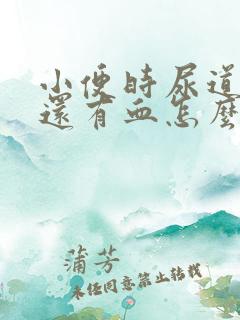 小便時尿道
還有血怎麼
蒲芳
未经同意禁止转载